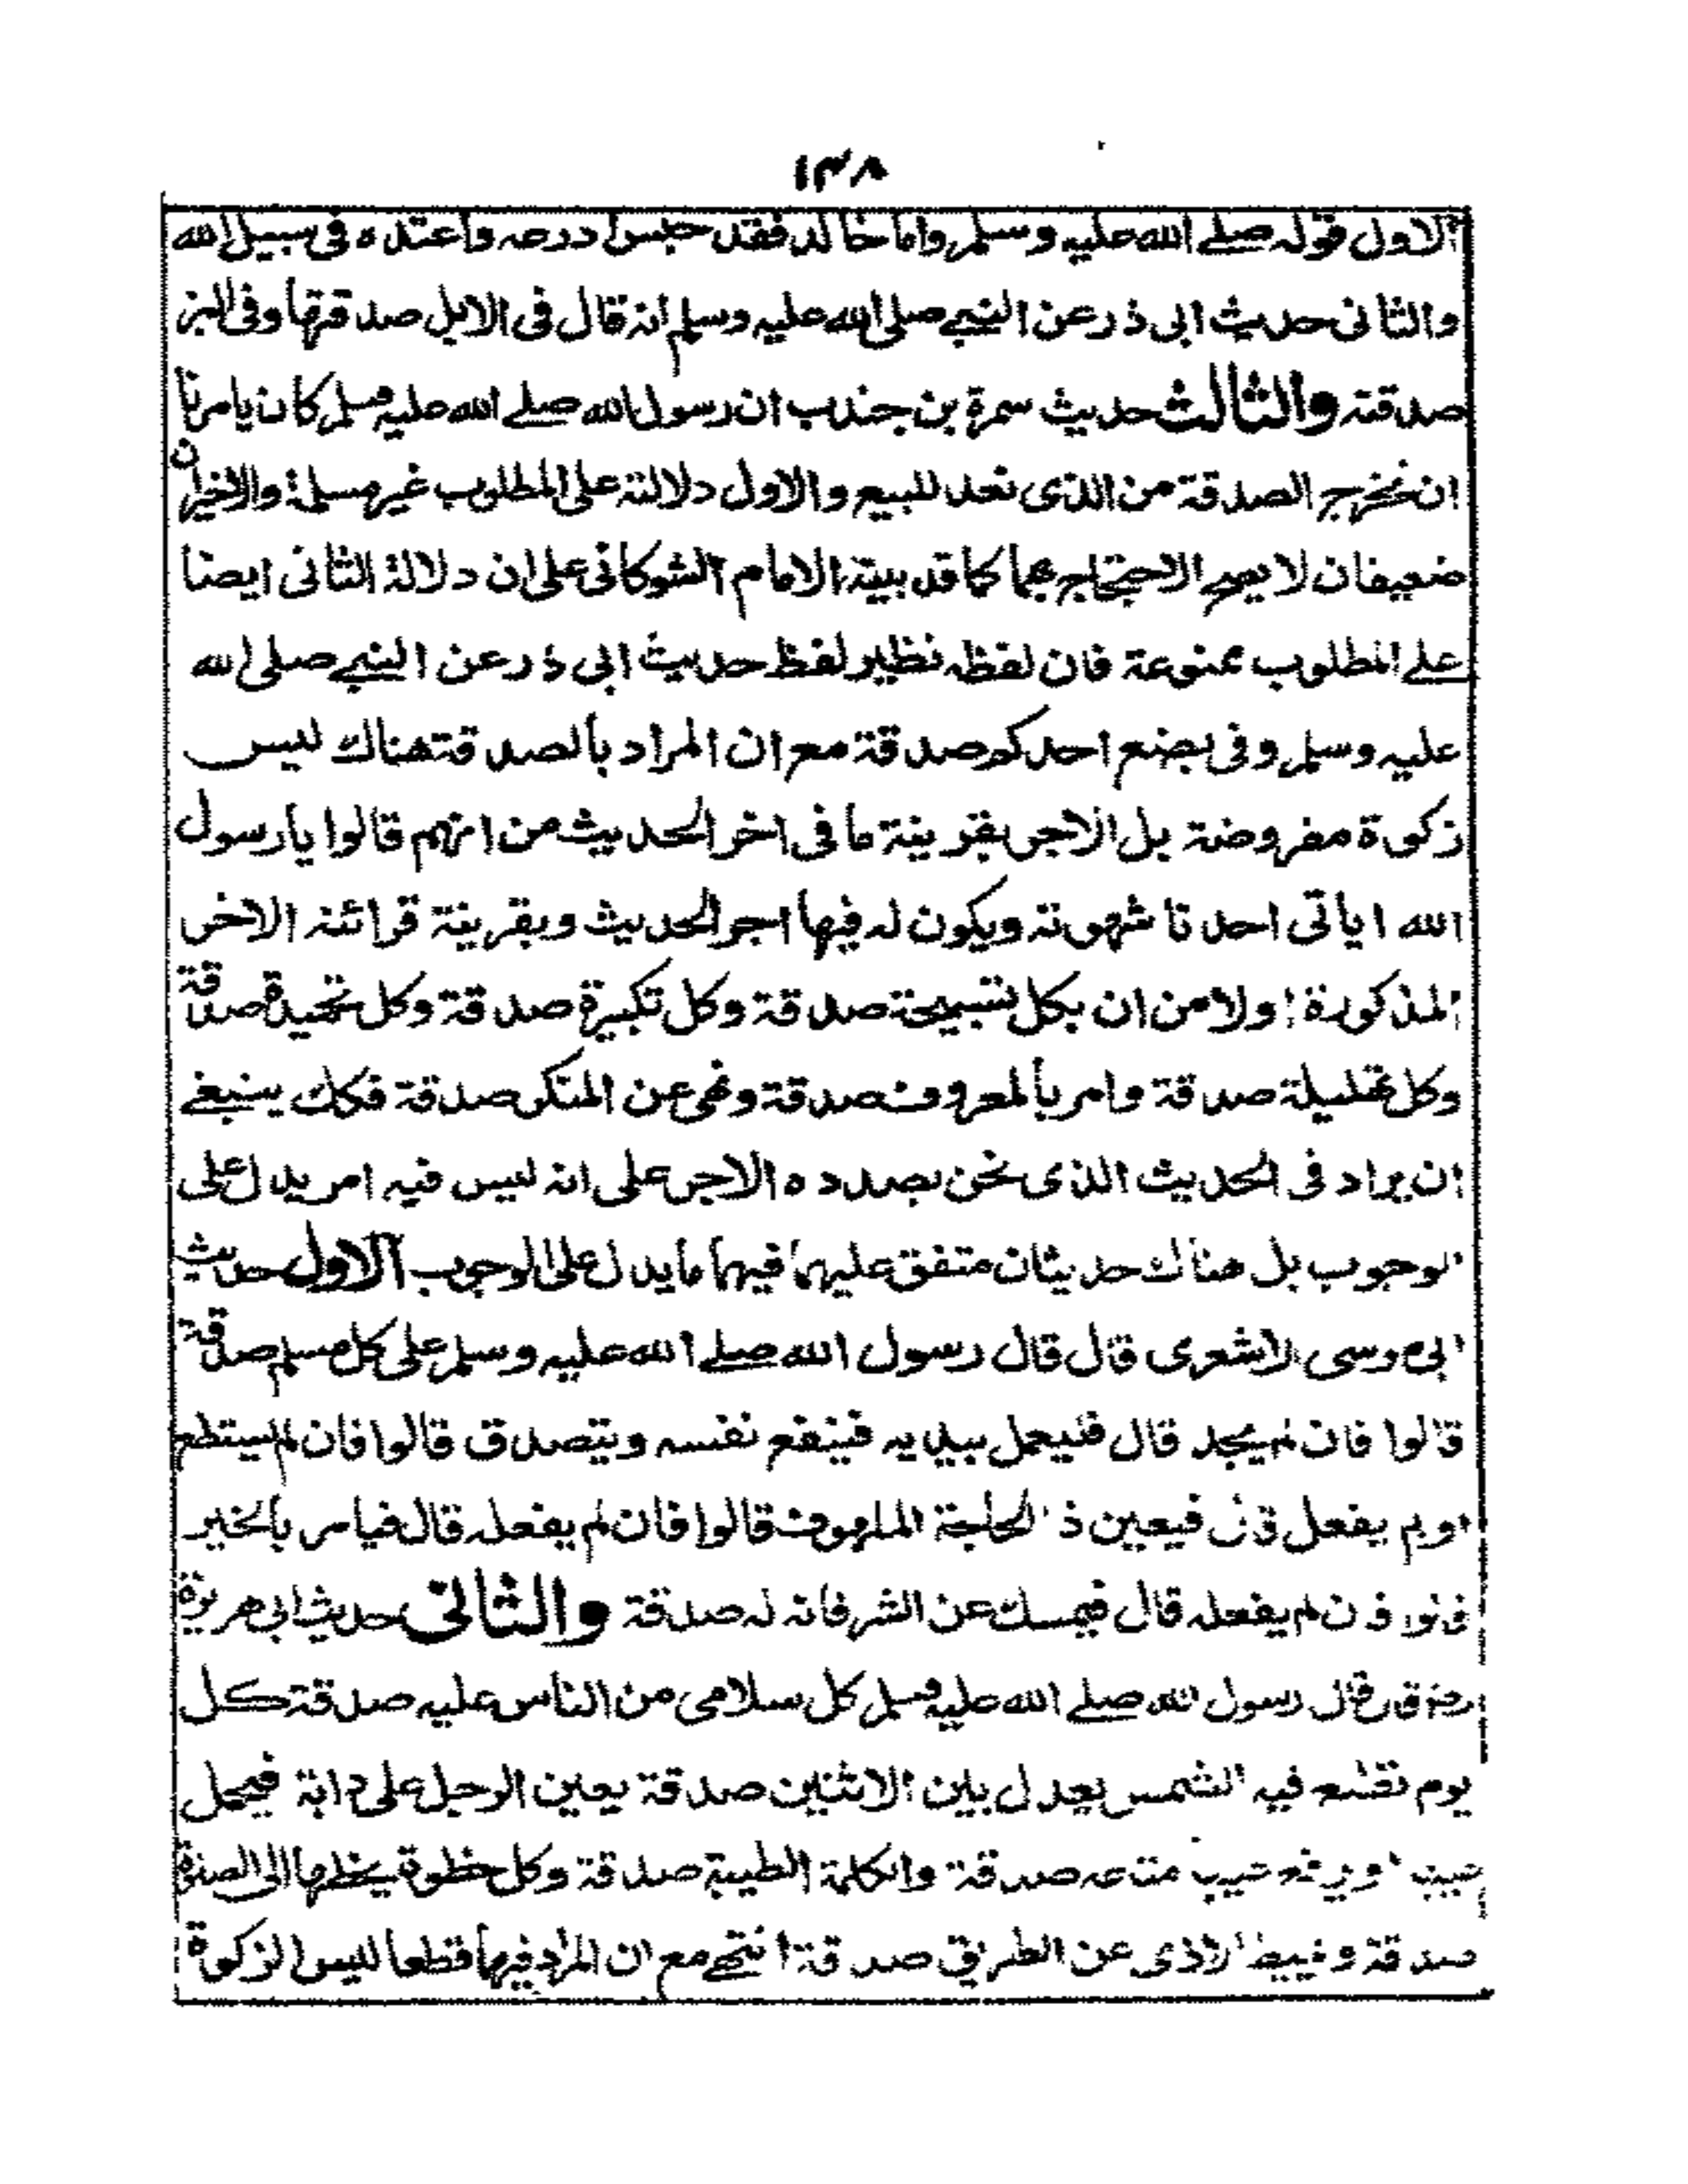 ١٣٨
الاول قوله صلى الله عليه وسلم واما خالد فقد حبس ادرعه واعتده فى سبيل الله
والثانى حديث ابى ذر عن النبى صلى الله عليه وسلم انه قال فى الابل صدقتها وفى البز
صدقته والثالث حديث سمرة بن جندب ان رسول الله صلى الله عليه وسلم كان يامرنا
ان نخرج الصدقة من الذى نعد للبيع والاول دلالته على المطلوب غير مسلمة والاخيران
ضعيفان لا يصح الاحتجاج بهما كما قد بينه الامام الشوكانى على ان دلالة الثانى ايضا
على المطلوب ممنوعة فان لفظه نظير لفظ حديث ابى ذر عن النبى صلى الله
عليه وسلم وفى بضع احدكم صدقة مع ان المراد بالصدقة هناك ليس
زكوة مفروضة بل الاجر بقرينة ما فى اخر الحديث من انهم قالوا يا رسول
الله اياتى احدنا شهوته ويكون له فيها اجر الحديث وبقرينة قرائنه الاخر
المذكورة اولا من ان بكل تسبيحة صدقة وكل تكبيرة صدقة وكل تحميدة صدقة
وكل تهليلة صدقة وامر بالمعروف صدقة ونهى عن المنكر صدقة فكك ينبغى
ان يراد فى الحديث الذى نحن بصدده الاجر على انه ليس فيه امر يدل على
الوجوب بل هناك حديثان متفق عليهما فيهما ما يدل على الوجوب الاول حديث
ابى موسى الاشعرى قال قال رسول الله صلى الله عليه وسلم على كل مسلم صدقة
قالوا فان لم يجد قال فليعمل بيديه فينفع نفسه ويتصدق قالوا فان لم يستطع
او لم يفعل قال فيعين ذا الحاجة الملهوف قالوا فان لم يفعله قال فيامر بالخير
قالوا فان لم يفعله قال فيمسك عن الشر فانه له صدقة والثانى حديث ابى هريرة
رضـ قال قال رسول الله صلى الله عليه وسلم كل سلامى من الناس عليه صدقة كل
يوم تطلع فيه الشمس يعدل بين الاثنين صدقة يعين الرجل على دابة فيحمل
عليها او يرفع عليها متاعه صدقة والكلمة الطيبة صدقة وكل خطوة يخطها الى الصلوة
صدقة ويميط الاذى عن الطريق صدقة انتهى مع ان المراد فيها قطعا ليس الزكوة